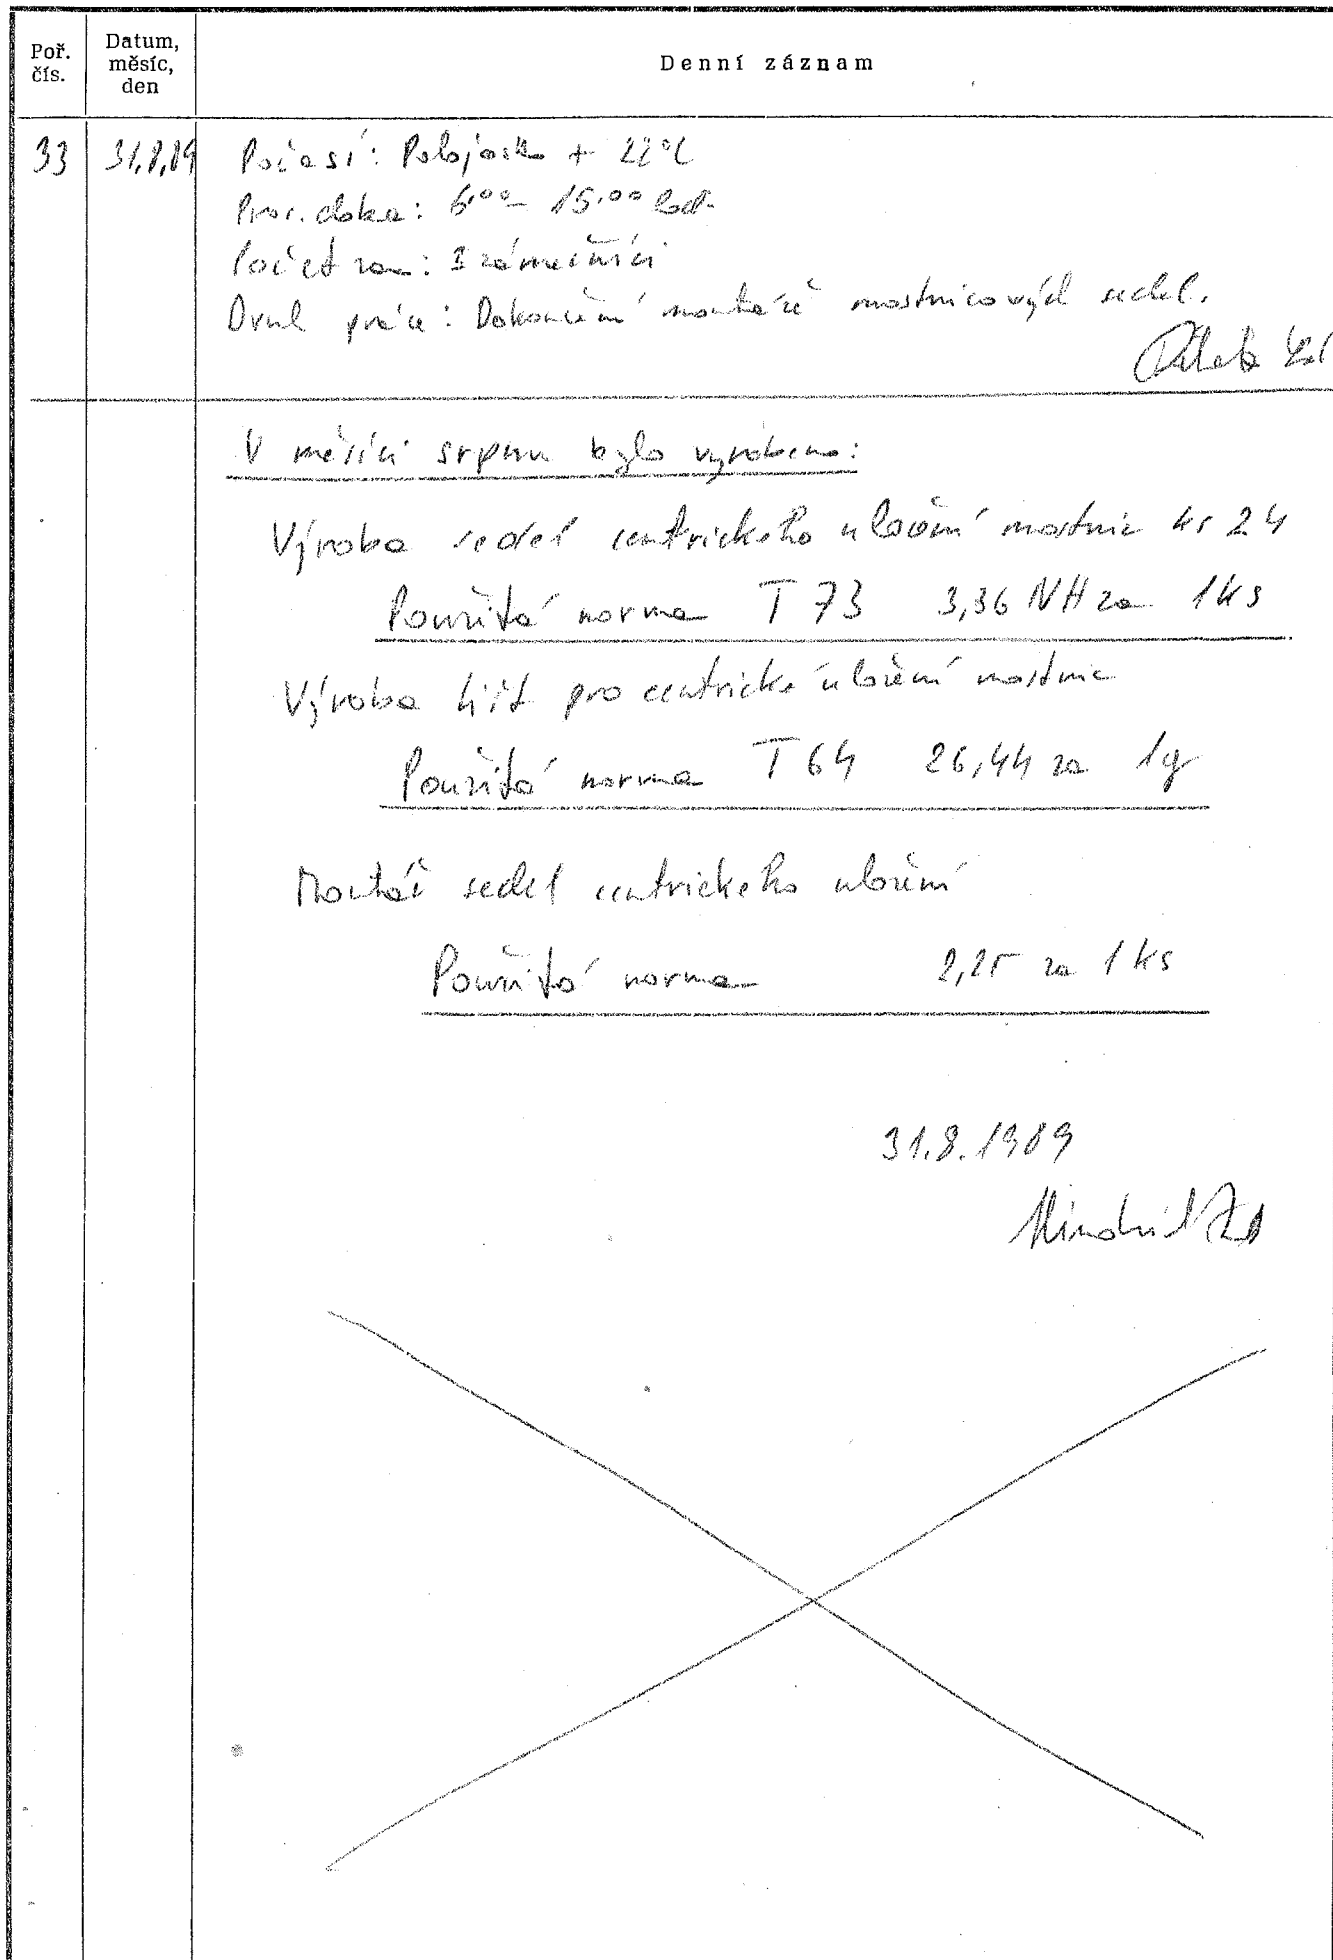 Poř. čís.
Datum, měsíc, den
Denní záznam
33 31.8.89 Počasí: Polojasno + 22°C
Prac. doba: 6.00 - 15.00 hod.
Počet zam: zámečníci
Druh práce: Dokončení montáže mostnicových sedel.
V měsíci srpnu bylo vyrobeno:
Výroba sedel centrického uložení mostnic ks 24
Použitá norma T 73 3,36 NH za 1 ks
Výroba lišt pro centrické uložení mostnic
Použitá norma T 64 26,44 za 1q
Montáž sedel centrického uložení
Použitá norma 2,25 za 1 ks
31.8.1989